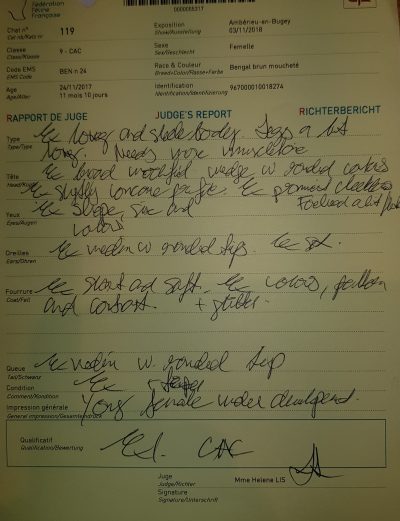 Fédération
Féline
Française
0000088317
Chat n°
Cat nb/Katz nr
119
Exposition
Show/Ausstellung
Ambérieu-en-Bugey
03/11/2018
Classe
Class/Klasse
9 - CAC
Sexe
Sex/Geschlecht
Femelle
Code EMS
EMS Code
BEN n 24
Race & Couleur
Breed+Color/Rasse+Farbe
Bengal brun moucheté
Age
Age/Alter
24/11/2017
11 mois 10 jours
Identification
Identification/Identifizierung
967000010018274
RAPPORT DE JUGE JUDGE'S REPORT RICHTERBERICHT
Type
Type/Type
Ex long and body. Legs a bit
long. Needs more muscle
Tête
Head/
Ex broad modified wedge w. rounded contours
Ex slightly concave profile Ex prominent
Forehead a bit
Yeux
Eyes/Augen
Ex shape, size and
colour
Oreilles
Ears/Ohren
Ex medium w. rounded tips. Ex set.
Fourrure
Coat/Fell
Ex short and soft. Ex colour, pattern
and contrast. + glitter.
Queue
Tail/Schwanz
Ex medium w. rounded tip
Condition
Comment/Kondition
Ex
Impression générale
General impression/Gesamteindruck
Young female under development.
Qualificatif
Qualification/Bewertung
Ex 1. CAC
Juge
Judge/Richter
Mme Helene LIS
Signature
Signature/Unterschrift